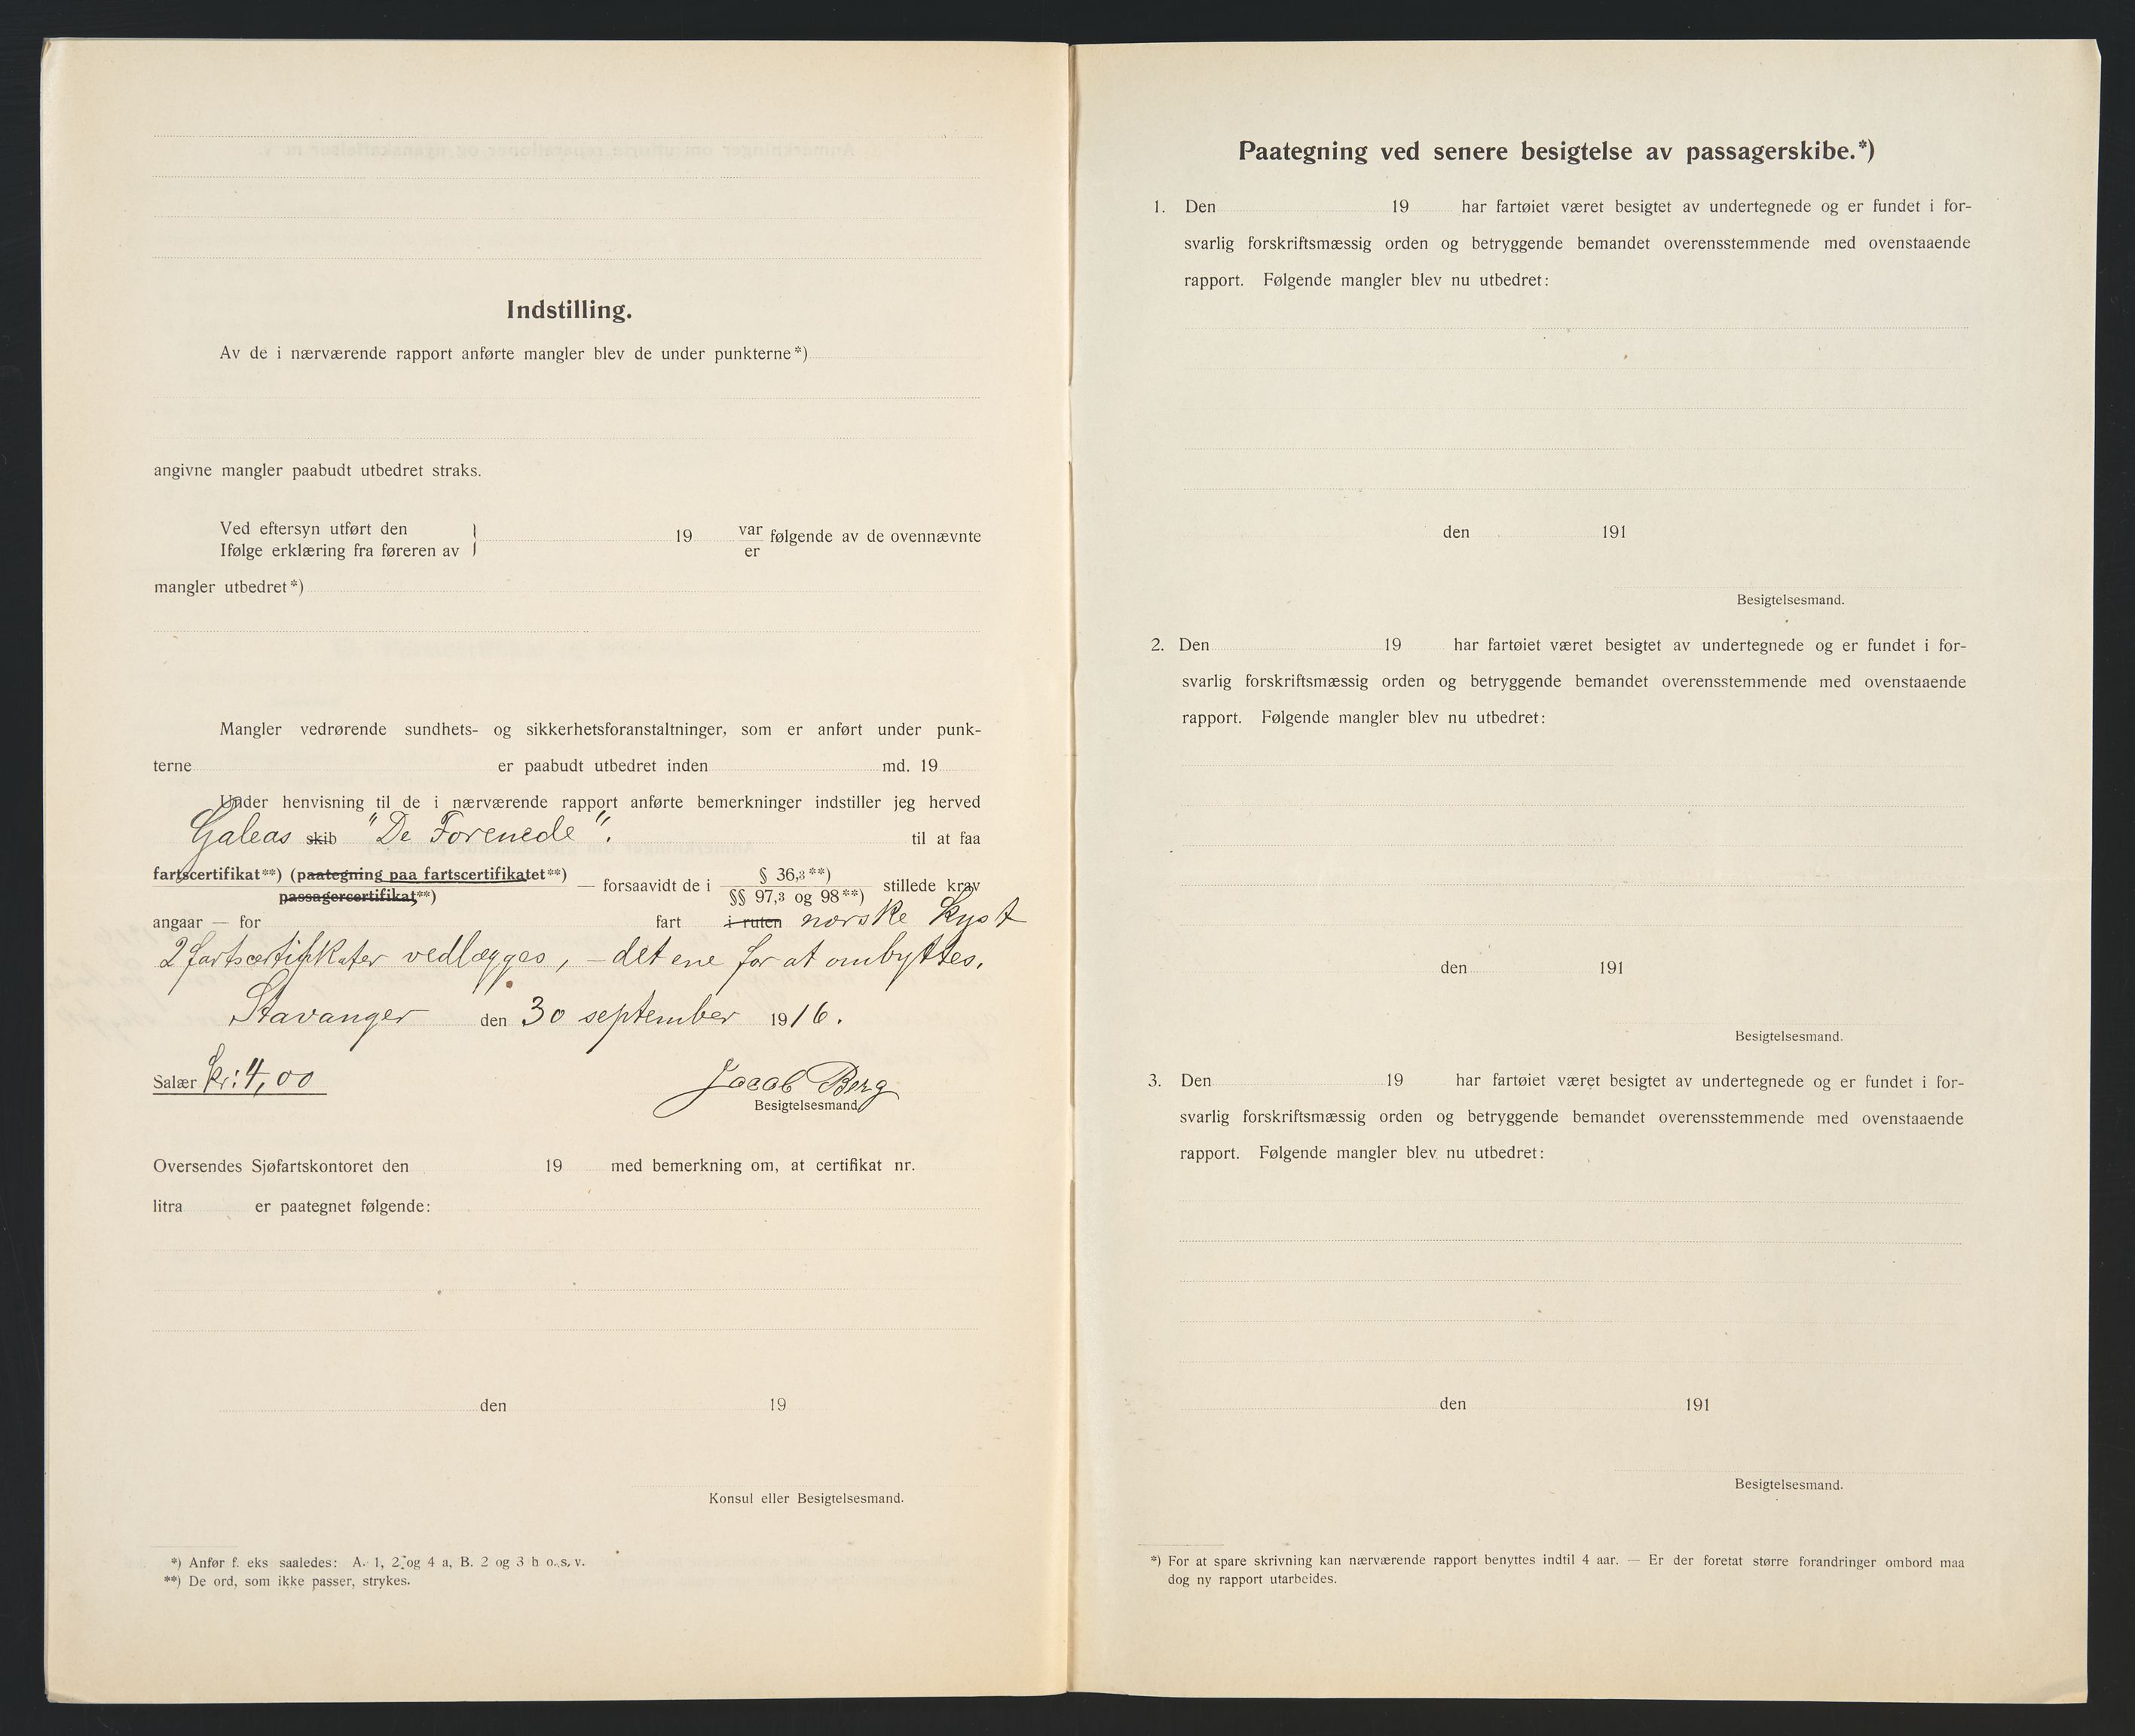 Indstilling.
Av de i nærværende rapport anførte mangler blev de under punkterne*)
angivne mangler paabudt utbedret straks.
Ved eftersyn utført den
Ifølge erklæring fra føreren av } 19 var følgende av de ovennævnte
er
mangler utbedret*)
Mangler vedrørende sundhets- og sikkerhetsforanstaltninger, som er anført under punk-
terne er paabudt utbedret inden md. 19
Under henvisning til de i nærværende rapport anførte bemerkninger indstiller jeg herved
Galeas skib "De Forenede". til at faa
fartscertifikat**) (paategning paa fartscertifikatet**)
passagercertifikat**) — forsaavidt de i § 36,3**)
§§ 97,3 og 98**) stillede krav
angaar — for fart i ruten norske Kyst
2 fartscertifikater vedlægges, – det ene for at ombyttes.
Stavanger den 30 september 1916.
Salær Kr: 4,00 Jacob Berg
Besigtelsesmand
Oversendes Sjøfartskontoret den 19 med bemerkning om, at certifikat nr.
litra er paategnet følgende:
den 19
Konsul eller Besigtelsesmand.
*) Anfør f. eks saaledes: A. 1, 2 og 4 a, B. 2 og 3 b o. s. v.
**) De ord, som ikke passer, strykes.
Paategning ved senere besigtelse av passagerskibe.*)
1. Den 19 har fartøiet været besigtet av undertegnede og er fundet i for-
svarlig forskriftsmæssig orden og betryggende bemandet overensstemmende med ovenstaaende
rapport. Følgende mangler blev nu utbedret:
den 191
Besigtelsesmand.
2. Den 19 har fartøiet været besigtet av undertegnede og er fundet i for-
svarlig forskriftsmæssig orden og betryggende bemandet overensstemmende med ovenstaaende
rapport. Følgende mangler blev nu utbedret:
den 191
Besigtelsesmand.
3. Den 19 har fartøiet været besigtet av undertegnede og er fundet i for-
svarlig forskriftsmæssig orden og betryggende bemandet overensstemmende med ovenstaaende
rapport. Følgende mangler blev nu utbedret:
den 191
Besigtelsesmand.
*) For at spare skrivning kan nærværende rapport benyttes indtil 4 aar. — Er der foretat større forandringer ombord maa
dog ny rapport utarbeides.